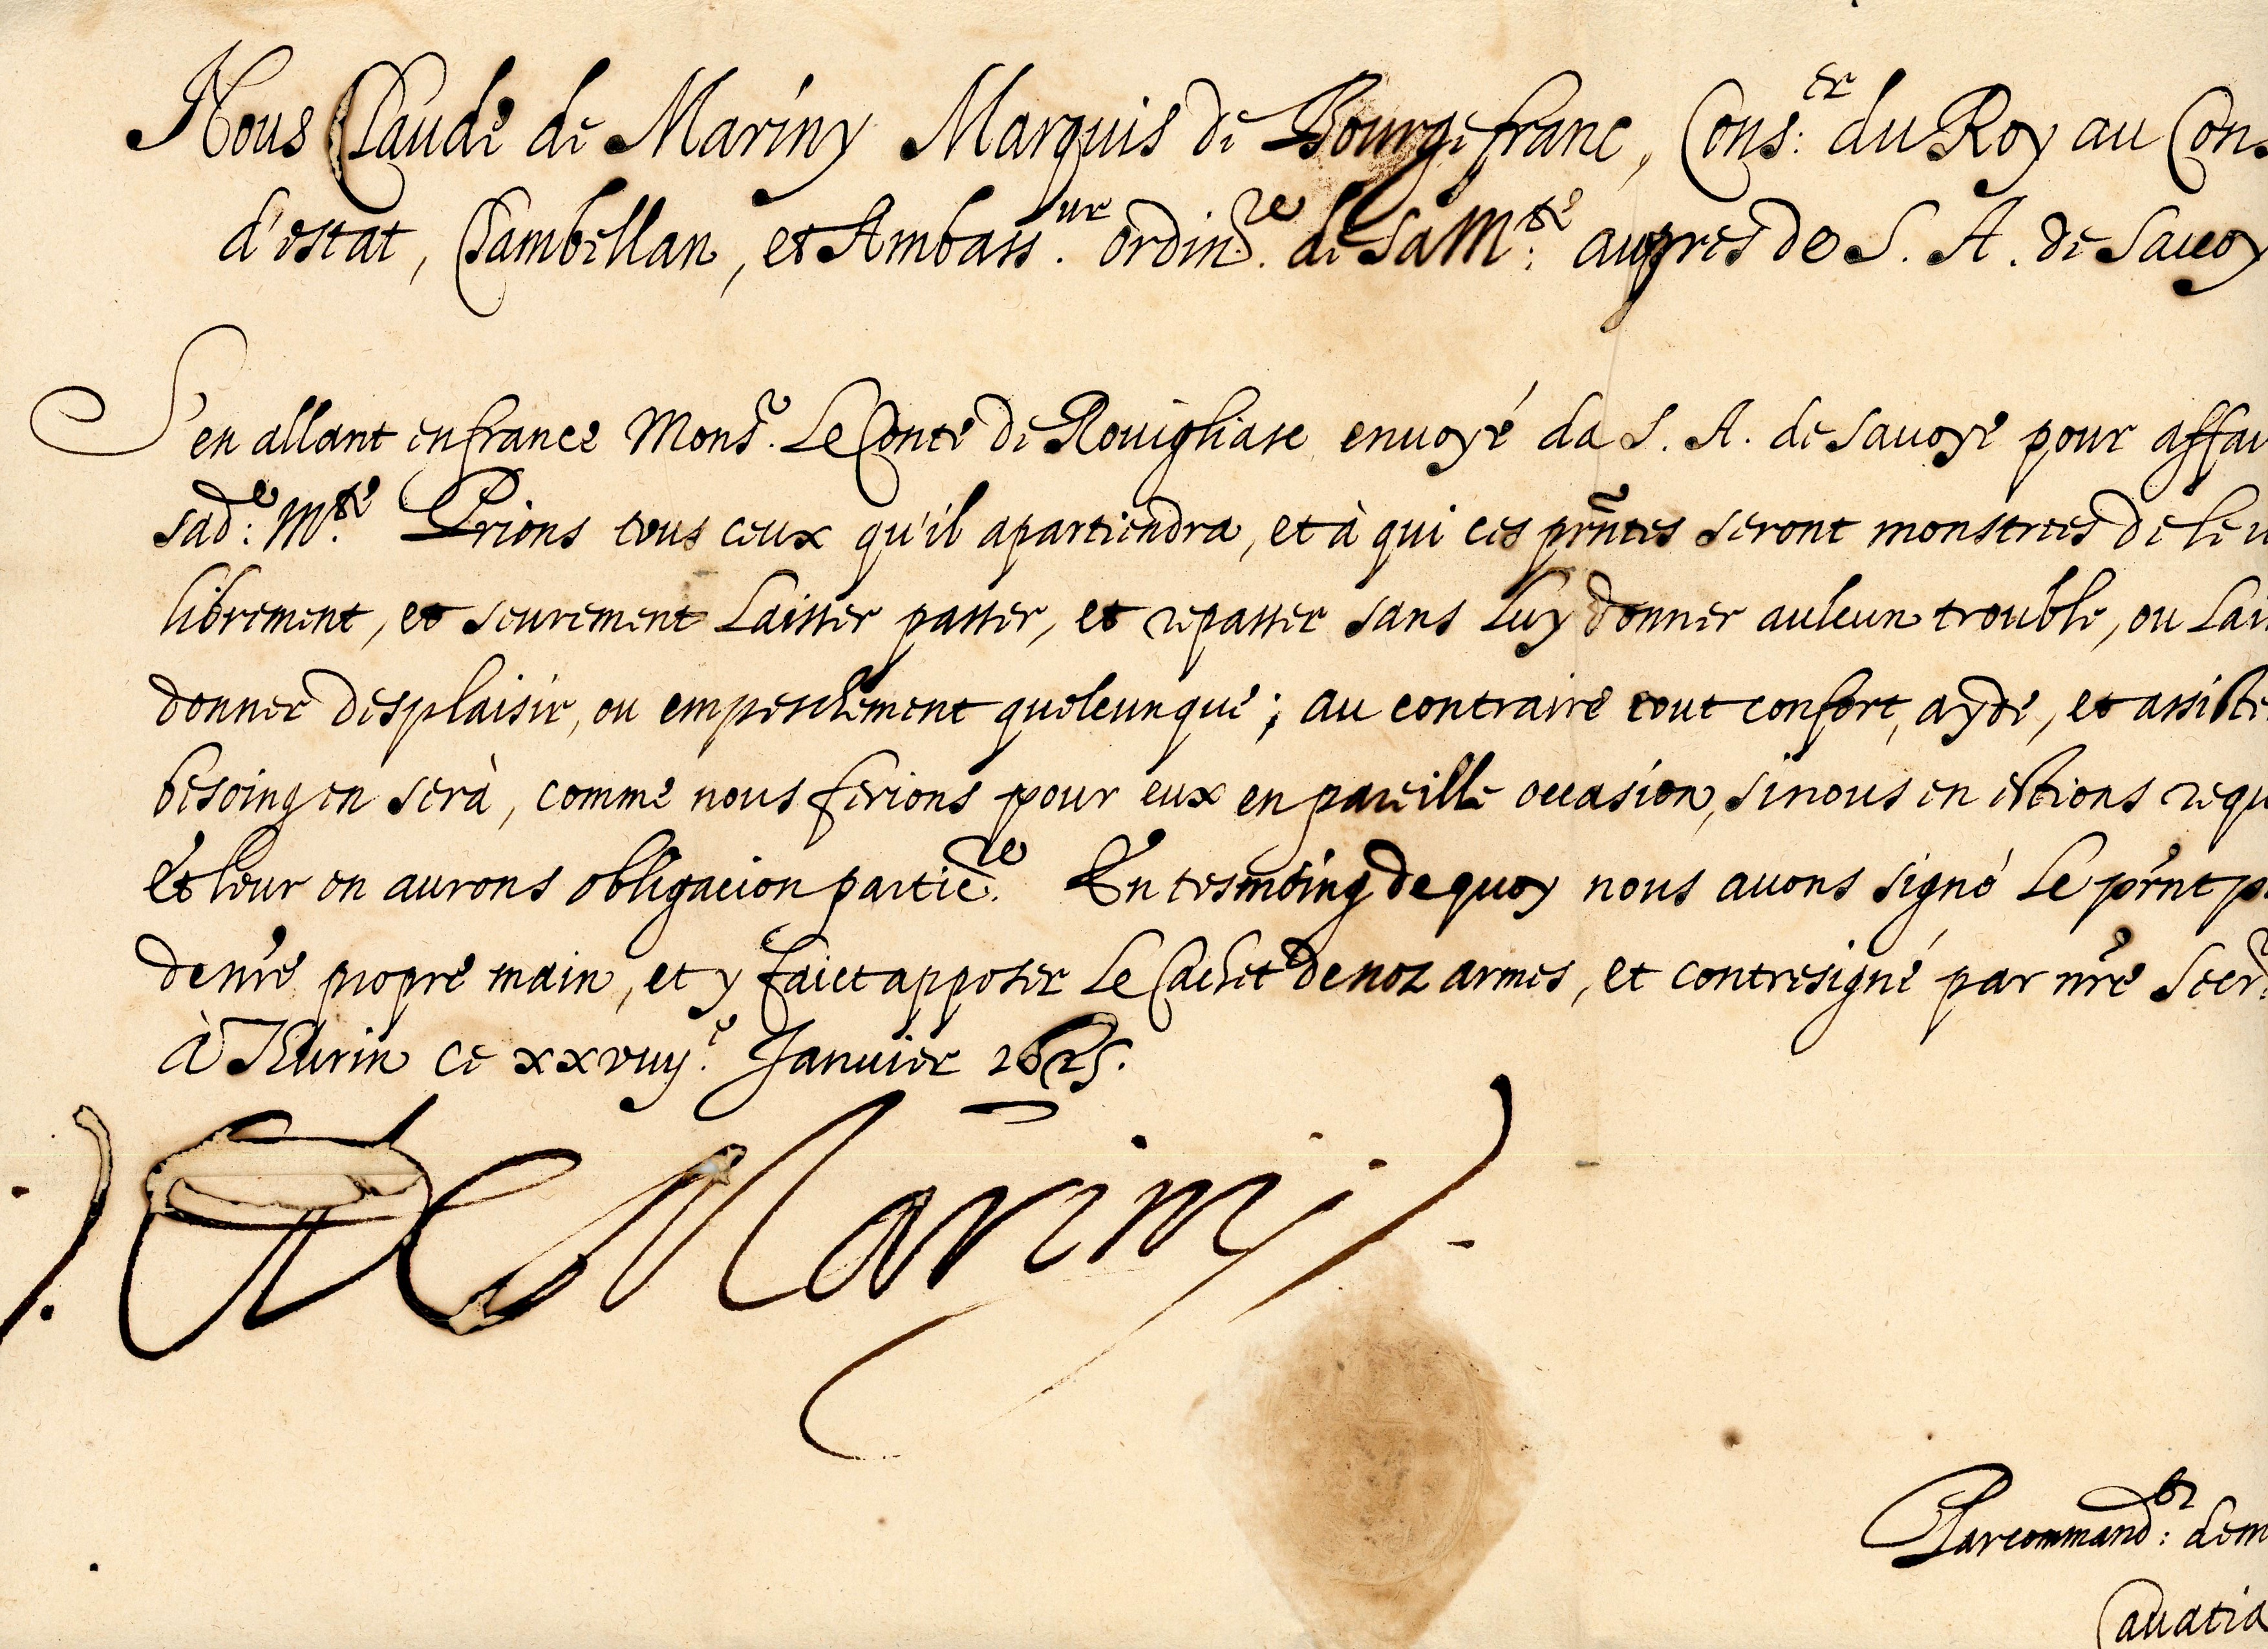 Nous Claude de Mariny Marquis de Bourgefranc, Cons:er du Roy au Cons
d'estat, Chambellan, et Ambass.ur ordin.re de sa M:té aupres de S. A. de Savoy
S'en allant en france Mons.r Le Conte de Rovigliase envoyé da S. A. de Savoye pour affai
sad:e M.té Prions tous ceux qu'il apartiendra, et à qui ces pñtes seront monstrees de le u
librement, et seurement Laisser passer, et repasser sans Luy donner aulcun trouble, ou Lais
donner desplaisir, ou empeschement quelcunque; au contraire tout confort, ayde, et assiste
besoing en serà, comme nous ferions pour eux en pareille occasion, si nous en estions requ
Et leur en aurons obligacion particre. En tesmoing de quoy nous avons signé Le prñt p
de nre propre main, et y faict apposer Le Cachet de noz armes, et contresigné par nre Secr
à Thurin ce xxviijᵉ. Janvier 1625.
C de Marini
Par command:t dem
Cavatia